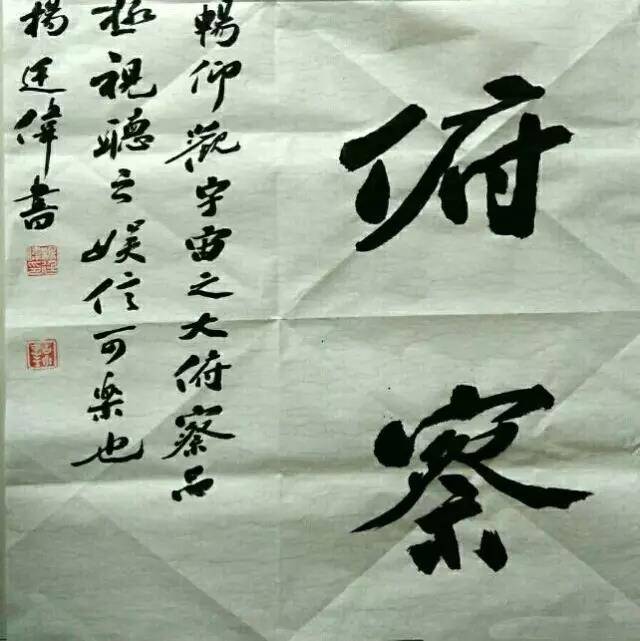 俯察
暢仰觀宇宙之大俯察品
極視聽之娱信可樂也
楊廷偉書